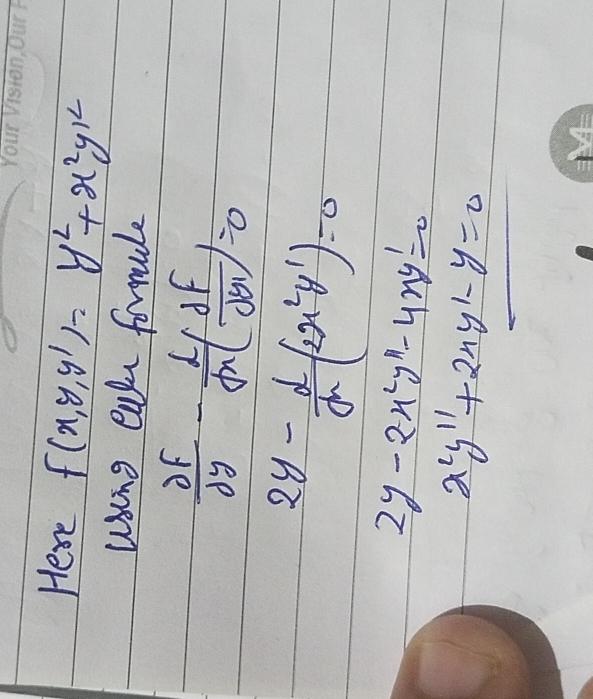 Your Vision, Our
Here f(x,y,y') = y² + x²y'²
using Euler formula
∂F/∂y - d/dx(∂F/∂y') = 0
2y - d/dx(2x²y') = 0
2y - 2x²y'' - 4xy' = 0
x²y'' + 2xy' - y = 0